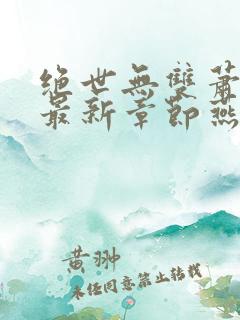 絕世無雙蕭
最新章節燕
黄翀
未经同意禁止转载